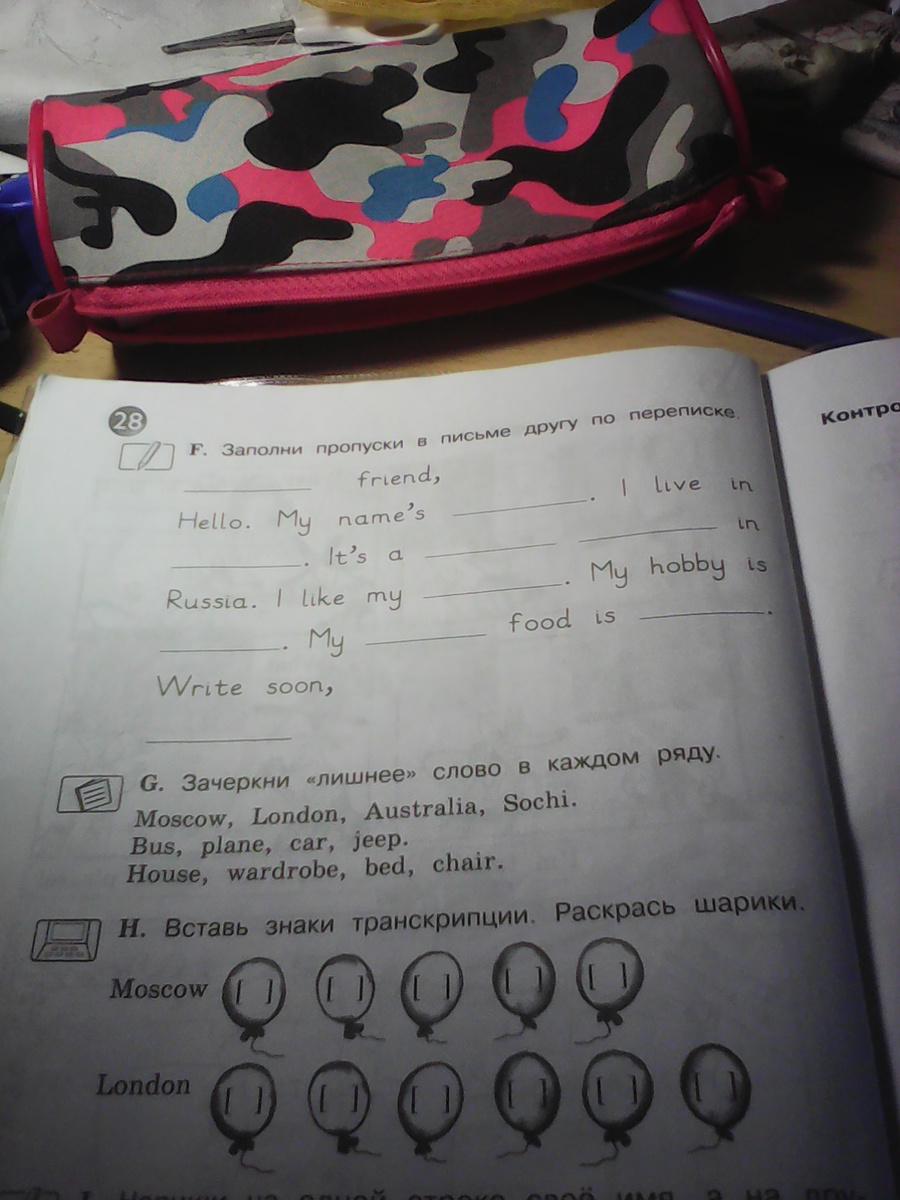 28
F. Заполни пропуски в письме другу по переписке.
Контро
____ friend,
Hello. My name's ____. I live in
____. It's a ____ ____ in
Russia. I like my ____. My hobby is
____. My ____ food is ____.
Write soon,
____
G. Зачеркни «лишнее» слово в каждом ряду.
Moscow, London, Australia, Sochi.
Bus, plane, car, jeep.
House, wardrobe, bed, chair.
H. Вставь знаки транскрипции. Раскрась шарики.
Moscow [ ] [ ] [ ] [ ] [ ]
London [ ] [ ] [ ] [ ] [ ] [ ]